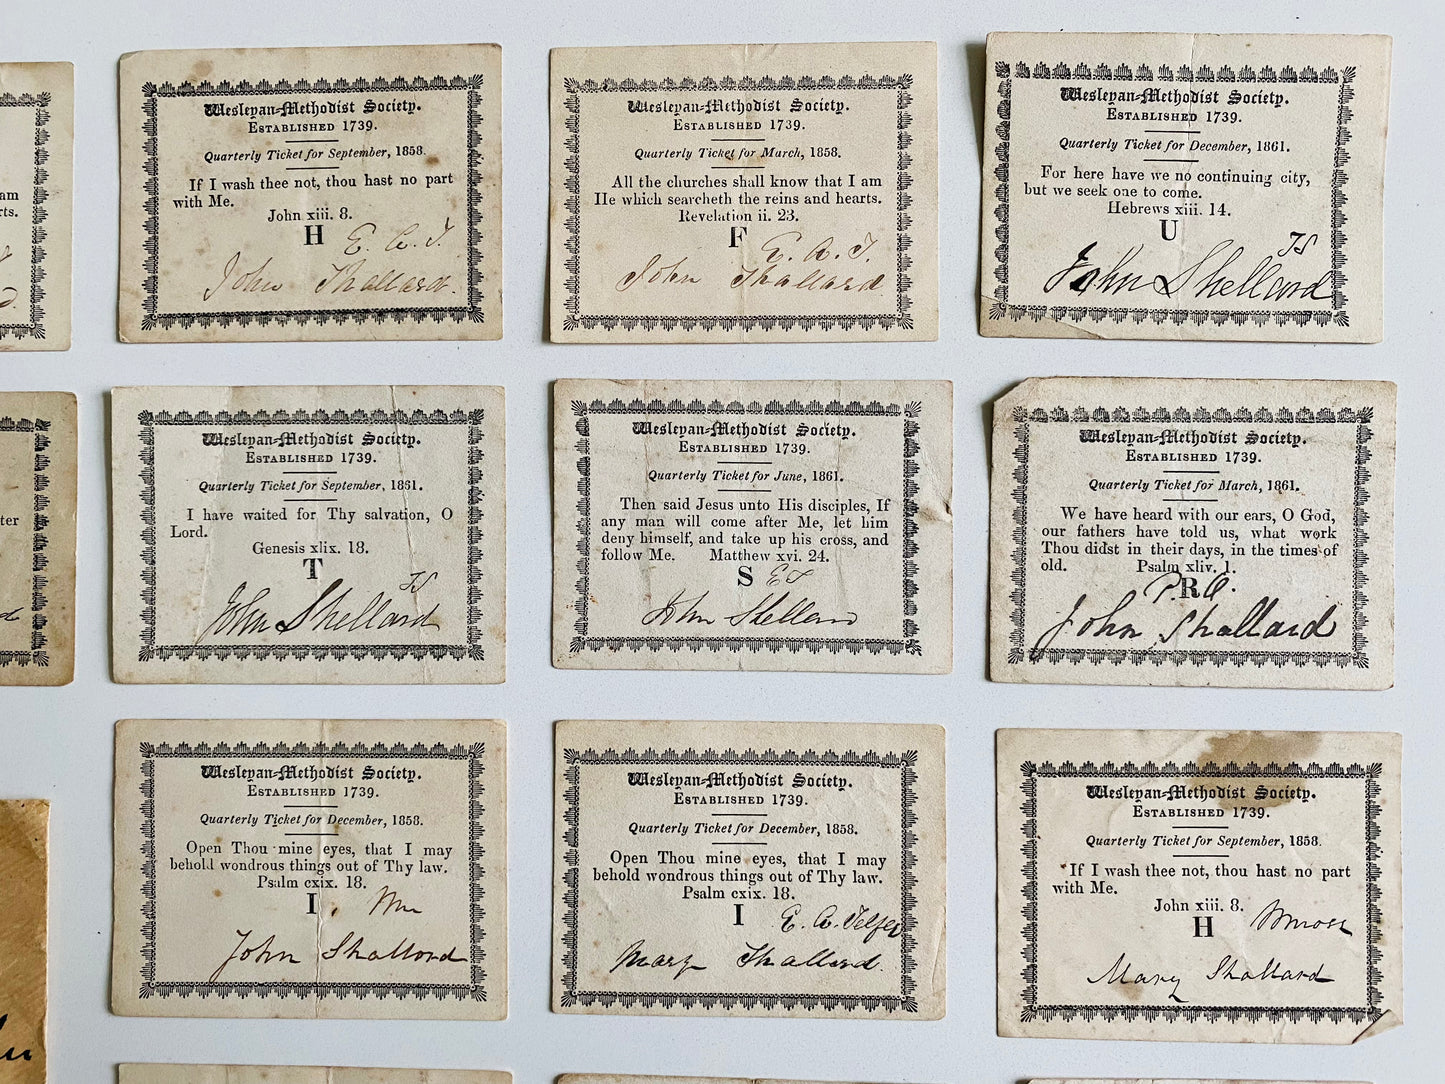 Wesleyan-Methodist Society.
ESTABLISHED 1739.
Quarterly Ticket for September, 1858.
If I wash thee not, thou hast no part
with Me.
John xiii. 8.
H E. A. T.
John Thallard.
Wesleyan-Methodist Society.
ESTABLISHED 1739.
Quarterly Ticket for March, 1858.
All the churches shall know that I am
He which searcheth the reins and hearts.
Revelation ii. 23.
F E. A. T.
John Thallard
Wesleyan-Methodist Society.
ESTABLISHED 1739.
Quarterly Ticket for December, 1861.
For here have we no continuing city,
but we seek one to come.
Hebrews xiii. 14.
U TS
John Shellard
Wesleyan-Methodist Society.
ESTABLISHED 1739.
Quarterly Ticket for September, 1861.
I have waited for Thy salvation, O
Lord.
Genesis xlix. 18.
T TS
John Shellard
Wesleyan-Methodist Society.
ESTABLISHED 1739.
Quarterly Ticket for June, 1861.
Then said Jesus unto His disciples, If
any man will come after Me, let him
deny himself, and take up his cross, and
follow Me. Matthew xvi. 24.
S ET
John
Wesleyan-Methodist Society.
ESTABLISHED 1739.
Quarterly Ticket for March, 1861.
We have heard with our ears, O God,
our fathers have told us, what work
Thou didst in their days, in the times of
old. Psalm xliv. 1.
R
John Shallard
Wesleyan-Methodist Society.
ESTABLISHED 1739.
Quarterly Ticket for December, 1858.
Open Thou mine eyes, that I may
behold wondrous things out of Thy law.
Psalm cxix. 18.
I
John Shallard
Wesleyan-Methodist Society.
ESTABLISHED 1739.
Quarterly Ticket for December, 1858.
Open Thou mine eyes, that I may
behold wondrous things out of Thy law.
Psalm cxix. 18.
I E. A. Telfer
Mary Thallard.
Wesleyan-Methodist Society.
ESTABLISHED 1739.
Quarterly Ticket for September, 1858.
If I wash thee not, thou hast no part
with Me.
John xiii. 8.
H
Mary Shallard